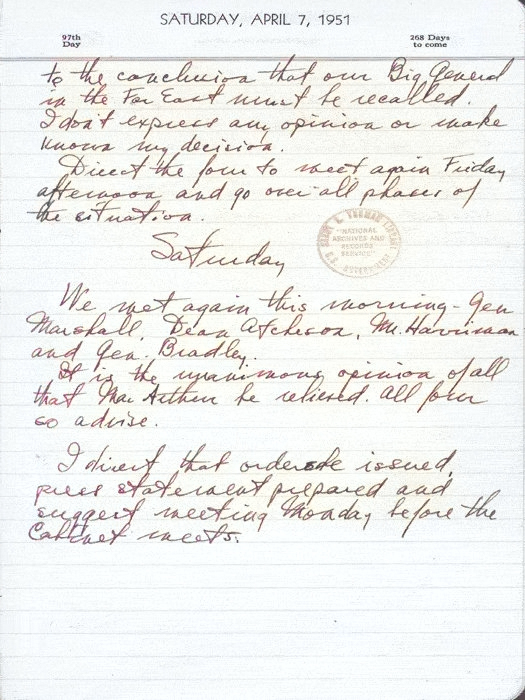 SATURDAY, APRIL 7, 1951
97th
Day
268 Days
to come
to the conclusion that our Big General
in the Far East must be recalled.
I don't express any opinion or make
known my decision.
Direct the four to meet again Friday
afternoon and go over all phases of
the situation.
HARRY S. TRUMAN LIBRARY
"NATIONAL
ARCHIVES AND
RECORDS
SERVICE"
U.S. GOVERNMENT
Saturday
We met again this morning - Gen
Marshall, Dean Atcheson, Mr. Harriman
and Gen. Bradley.
It is the unanimous opinion of all
that Mac Arthur be relieved. All four
so advise.
I direct that orders be issued,
press statement prepared and
suggest meeting Monday before the
Cabinet meets.